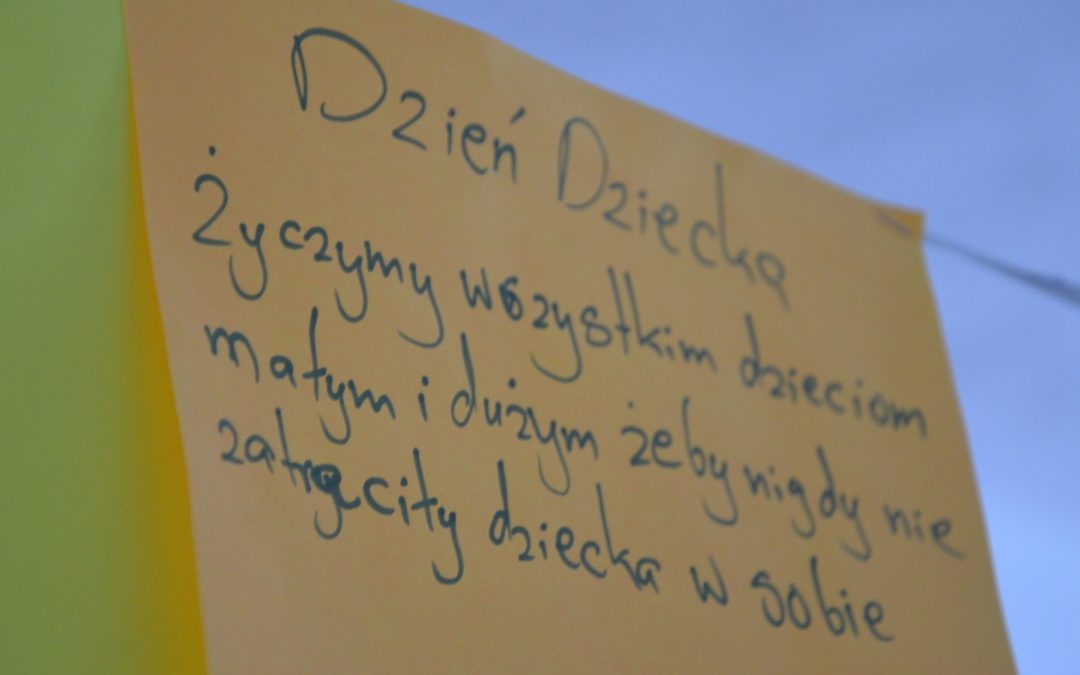 Dzień Dziecka
Życzymy wszystkim dzieciom
małym i dużym żeby nigdy nie
zatraciły dziecka w sobie